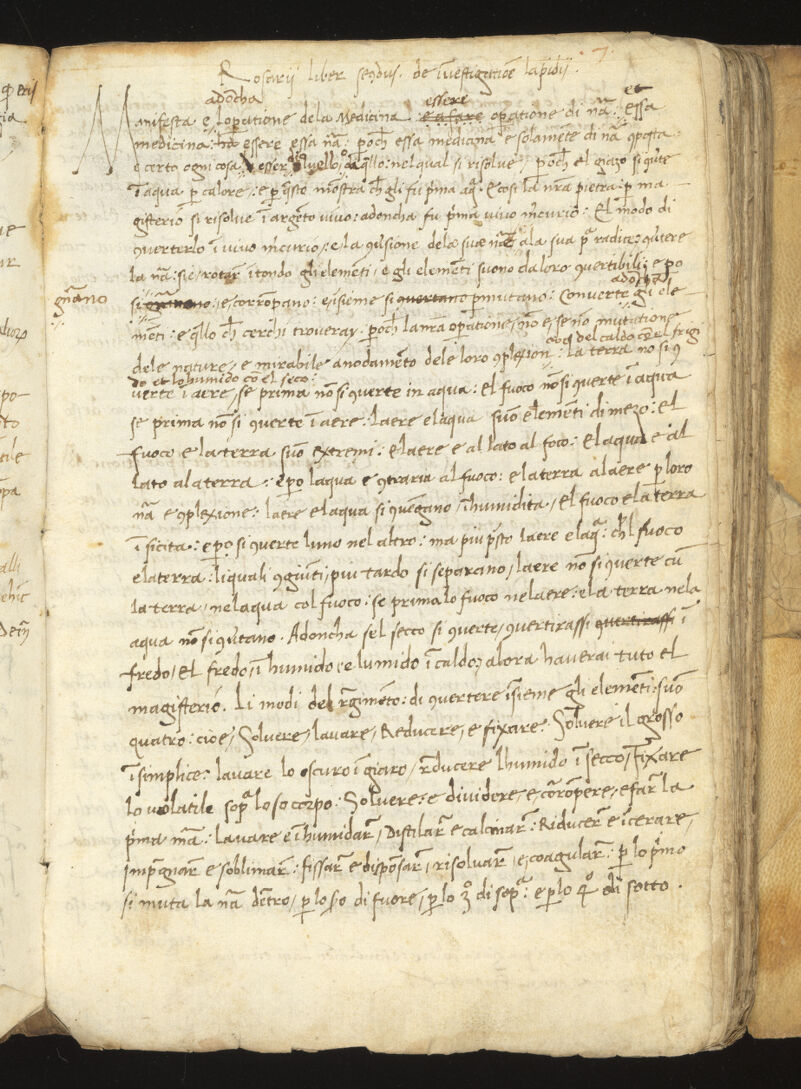 7.
Rosarij liber secũdus. de Ĩvestigatiõe lapidij
adõcha essere et
Manifesta e, lopatione dela Medicina e a fare opatione di nã: essa
medicina: essere essa nã: poch̃ essa medicina e solamẽte di nã cposta
e certo ogni cosa esser quello, da qllo: nel qual si risolve: poch̃ el giazo si cũte
ĩ aqua p calore: e p q̃sto mostra ch̃ gli fu p̃ma aq̃: E cosi la nr̃a pietra: p ma
gisterio si risolve ĩ argẽto vivo: adoncha fu p̃ma vivo m̃curio: El modo di
cverterlo ĩ vivo m̃curio: e la cũsione dela sua nã ala sua p̃ radice: cũtere
la nã: sie, rotar̃ ĩ tondo gli elemẽti, e gli elemẽti sueno daloro cvertibili: e po
gñano
adõcha
si, e corrõpano: e ĩsieme si pmutano: Converte gi ele
mẽti: e qllo ch̃ cerchi troveray. poch̃ la nr̃a opatione nõ e, se nõ mutatione
cioe del caldo cõ el frigi
dele nature, e mirabile anodamẽto dele loro cplexion: la terra no si c
do et lo humido cõ el seco:
verte ĩ aere, se prima nõ si cverte in aqua: el fuoco nõ si cverte ĩ aqua
se prima nõ si cverte ĩ aere: laere elaqua suõ elemẽti di mezo: el
fuoco e la terra suõ extremi: elaere e al lato al foco: elaqua e al
lato ala terra: e po laqua e cõtraria al fuoco: e la terra alaere p loro
nã e cplexione: laere elaqua si cvẽgano, ĩ humidita, el fuoco ela terra
ĩ sicita: e po si cverte luno nel altro: ma piu p̃sto laere e laq̃: ch̃ l fuoco
elaterra: li quali cgiũti, piu tardo si separano, laere nõ si cverte cũ
la terra, nelaqua col fuoco: se prima lo fuoco nelaere: ela terra nela
aqua nõ si cũtano. Adoncha sel secco si cverte, cvertirassi ĩ
fredo, el fredo, ĩ humido: e lumido ĩ caldo: alora haverai tuto el
magisterio. Li modi del rg̃imẽto: di cvertere ĩsieme gli elemẽti: suõ
quatro: cioe, Solvere, lavare, Reducere, e fixare: Solvere il grosso
ĩ simplice: lavare lo oscuro ĩ giaro, rducere lhumido ĩ secco, Fixare
lo volatile sop̃ lo so corpo: Solvere: e dividere, e cõrõpere, e far̃ la
p̃ma mã: lavare e ĩ humidar̃, Distilar̃ e calcinar̃: Riducer̃ e ĩcerare,
Impg̃nar̃ e soblimar̃: fissar̃ e disposar̃, risolvar̃, e coagular̃: p lo p̃mo
si muta la nã dẽtro, p lo so di fuore, p lo 3º di sop̃: e p lo 4º di sotto.